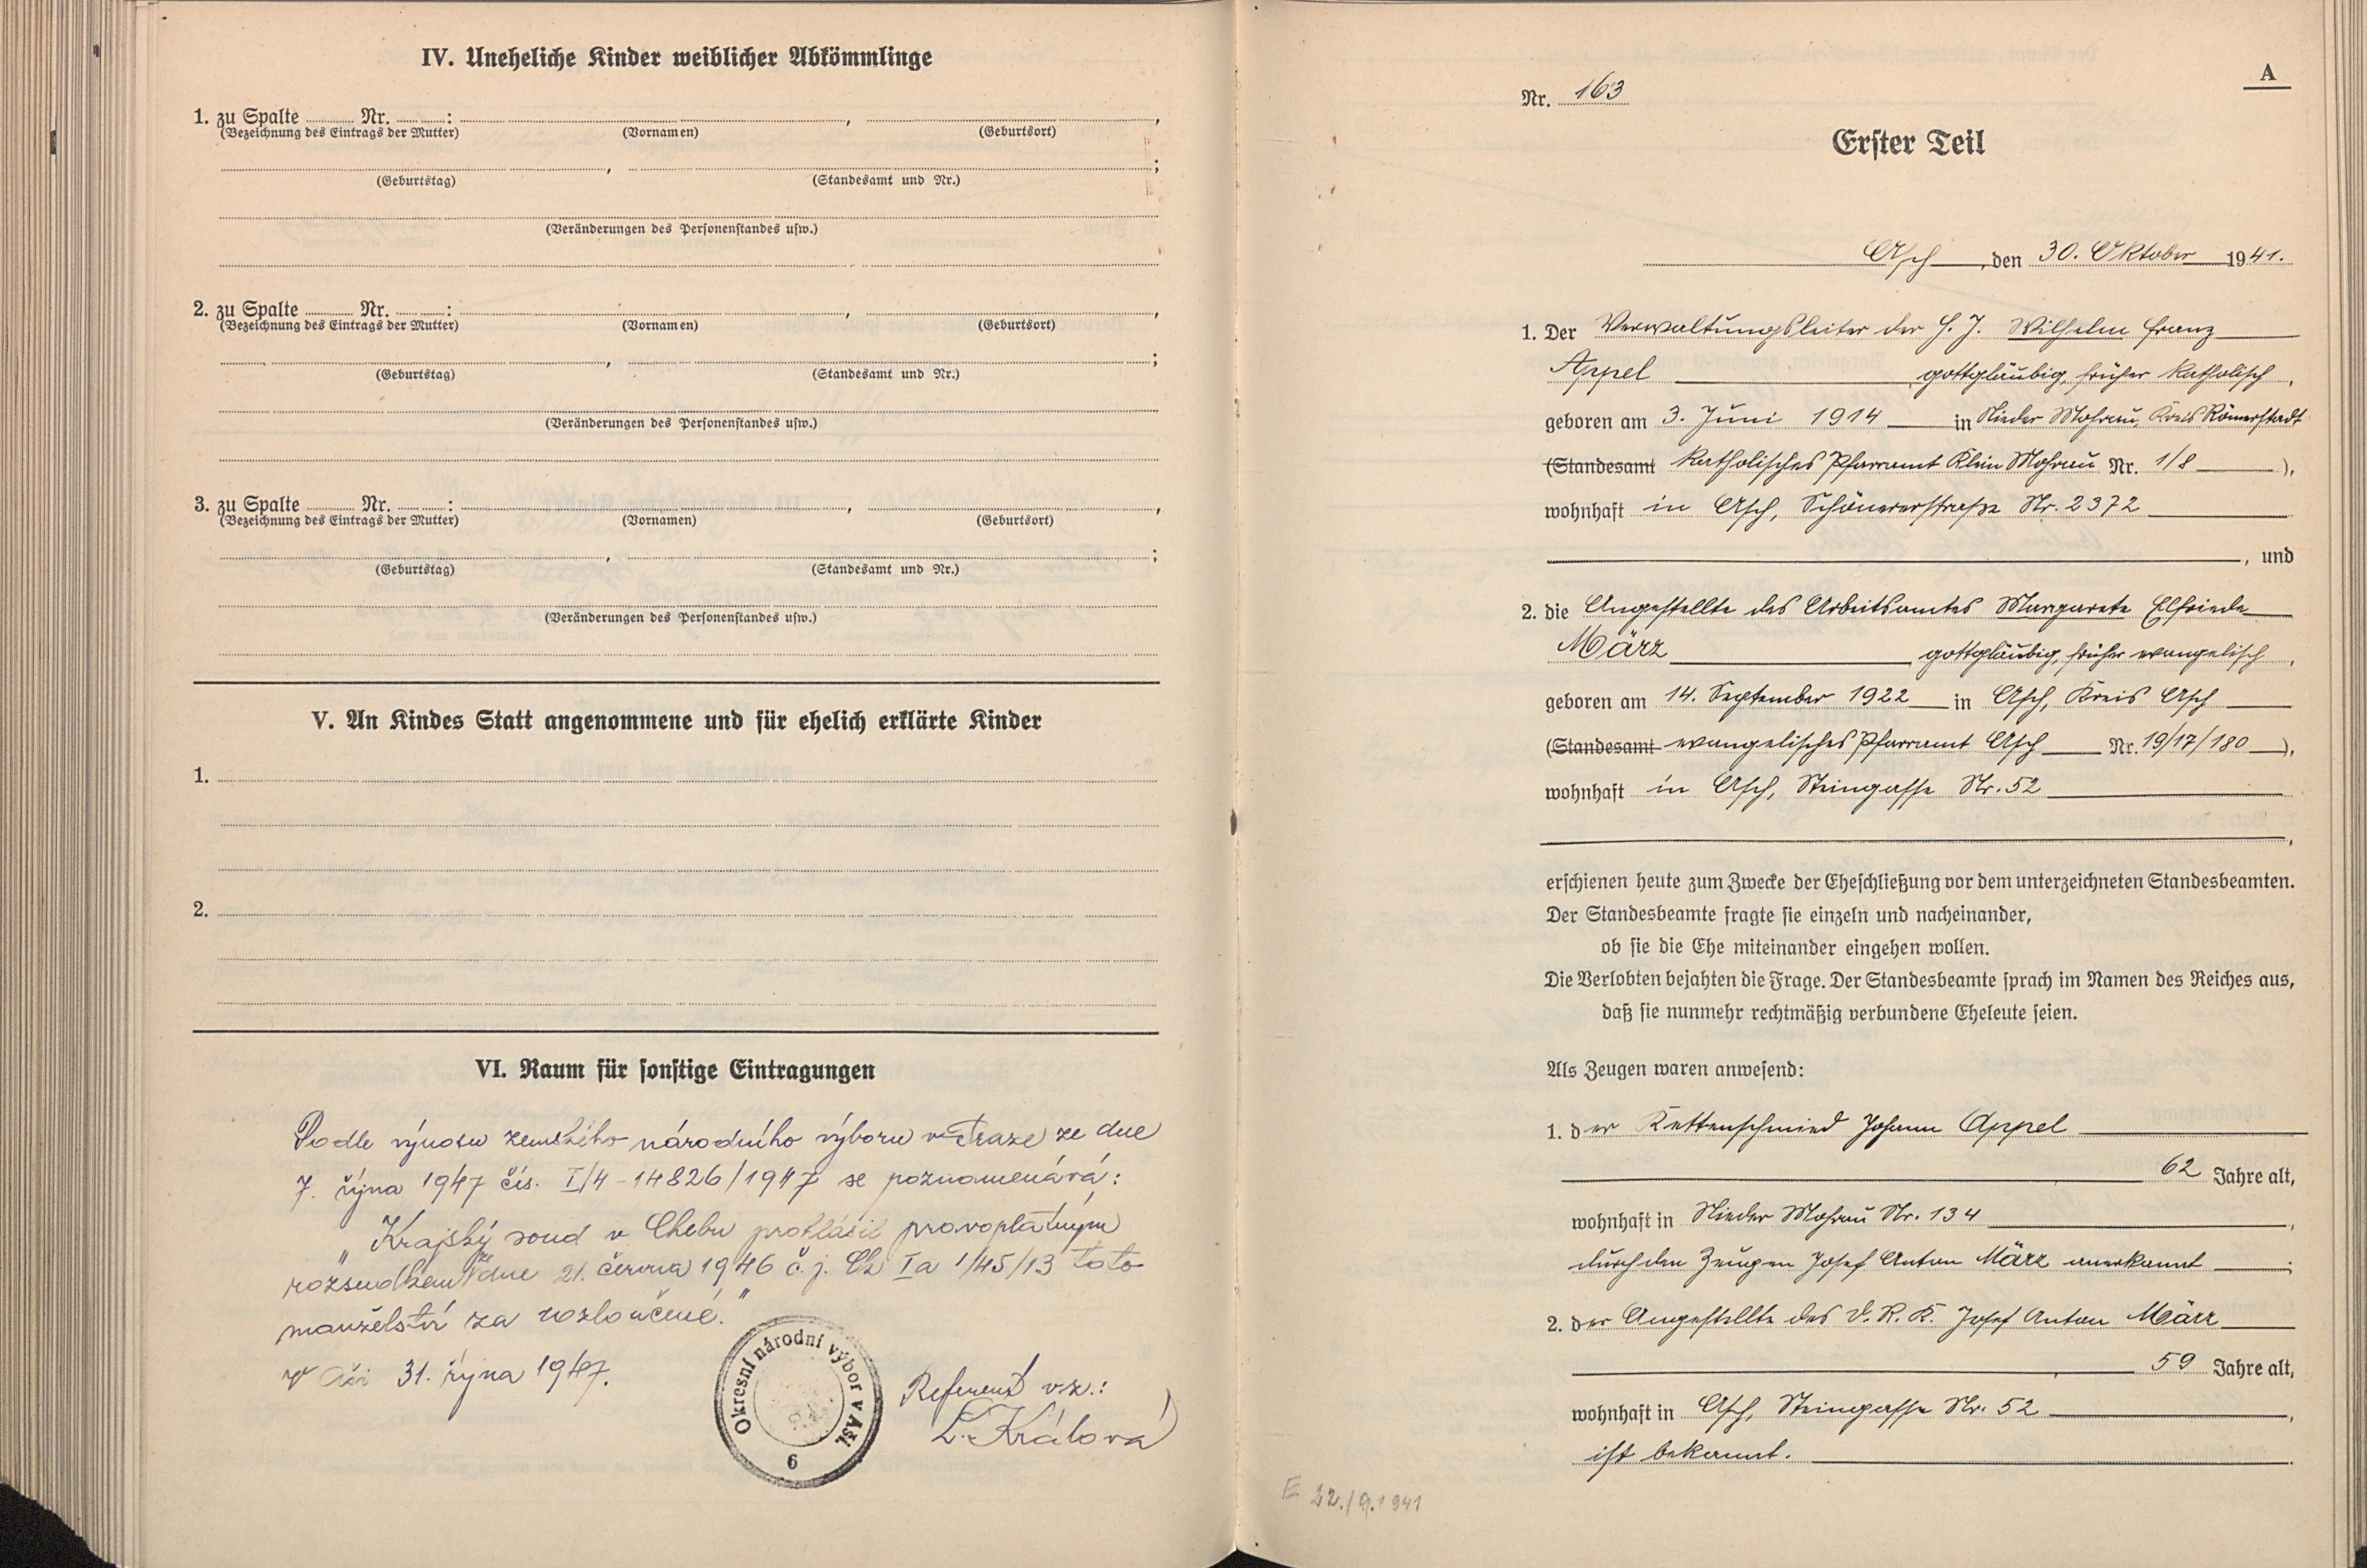 IV. Uneheliche Kinder weiblicher Abkömmlinge
1. zu Spalte ........ Nr. ........:
(Bezeichnung des Eintrags der Mutter) (Vornamen) (Geburtsort)
(Geburtstag) (Standesamt und Nr.)
(Veränderungen des Personenstandes usw.)
2. zu Spalte ........ Nr. ........:
(Bezeichnung des Eintrags der Mutter) (Vornamen) (Geburtsort)
(Geburtstag) (Standesamt und Nr.)
(Veränderungen des Personenstandes usw.)
3. zu Spalte ........ Nr. ........:
(Bezeichnung des Eintrags der Mutter) (Vornamen) (Geburtsort)
(Geburtstag) (Standesamt und Nr.)
(Veränderungen des Personenstandes usw.)
V. An Kindes Statt angenommene und für ehelich erklärte Kinder
1.
2.
VI. Raum für sonstige Eintragungen
Podle výnosu zemského národního výboru v Praze ze dne
7. října 1947 čís. I/4-14826/1947 se poznamenává:
„Krajský soud v Chebu prohlásil pravoplatným
rozsudkem ze dne 21. června 1946 č.j. Ck Ia 1/45/13 toto
manželství za rozloučené."
V Aši 31. října 1947.
Okresní národní výbor v Aši.
6
Referent v.z.:
L. Králová
A
Nr. 163
Erster Teil
Asch, den 30. Oktober 1941.
1. Der Verwaltungsleiter der H. J. Wilhelm Franz
Appel gottgläubig, früher katholisch,
geboren am 3. Juni 1914 in Nieder Mohrau, Kreis Römerstadt
(Standesamt katholisches Pfarramt Klein Mohrau Nr. 1/8),
wohnhaft in Asch, Schönererstraße Nr. 2372
, und
2. die Angestellte des Arbeitsamtes Margarete Elfriede
März gottgläubig, früher evangelisch,
geboren am 14. September 1922 in Asch, Kreis Asch
(Standesamt evangelisches Pfarramt Asch Nr. 19/17/180),
wohnhaft in Asch, Steingasse Nr. 52
,
erschienen heute zum Zwecke der Eheschließung vor dem unterzeichneten Standesbeamten.
Der Standesbeamte fragte sie einzeln und nacheinander,
ob sie die Ehe miteinander eingehen wollen.
Die Verlobten bejahten die Frage. Der Standesbeamte sprach im Namen des Reiches aus,
daß sie nunmehr rechtmäßig verbundene Eheleute seien.
Als Zeugen waren anwesend:
1. der Kettenschmied Johann Appel
62 Jahre alt,
wohnhaft in Nieder Mohrau Nr. 134,
durch den Zeugen Josef Anton März anerkannt;
2. der Angestellte des D. R. K. Josef Anton März
59 Jahre alt,
wohnhaft in Asch, Steingasse Nr. 52,
ist bekannt.
E 22./9.1941